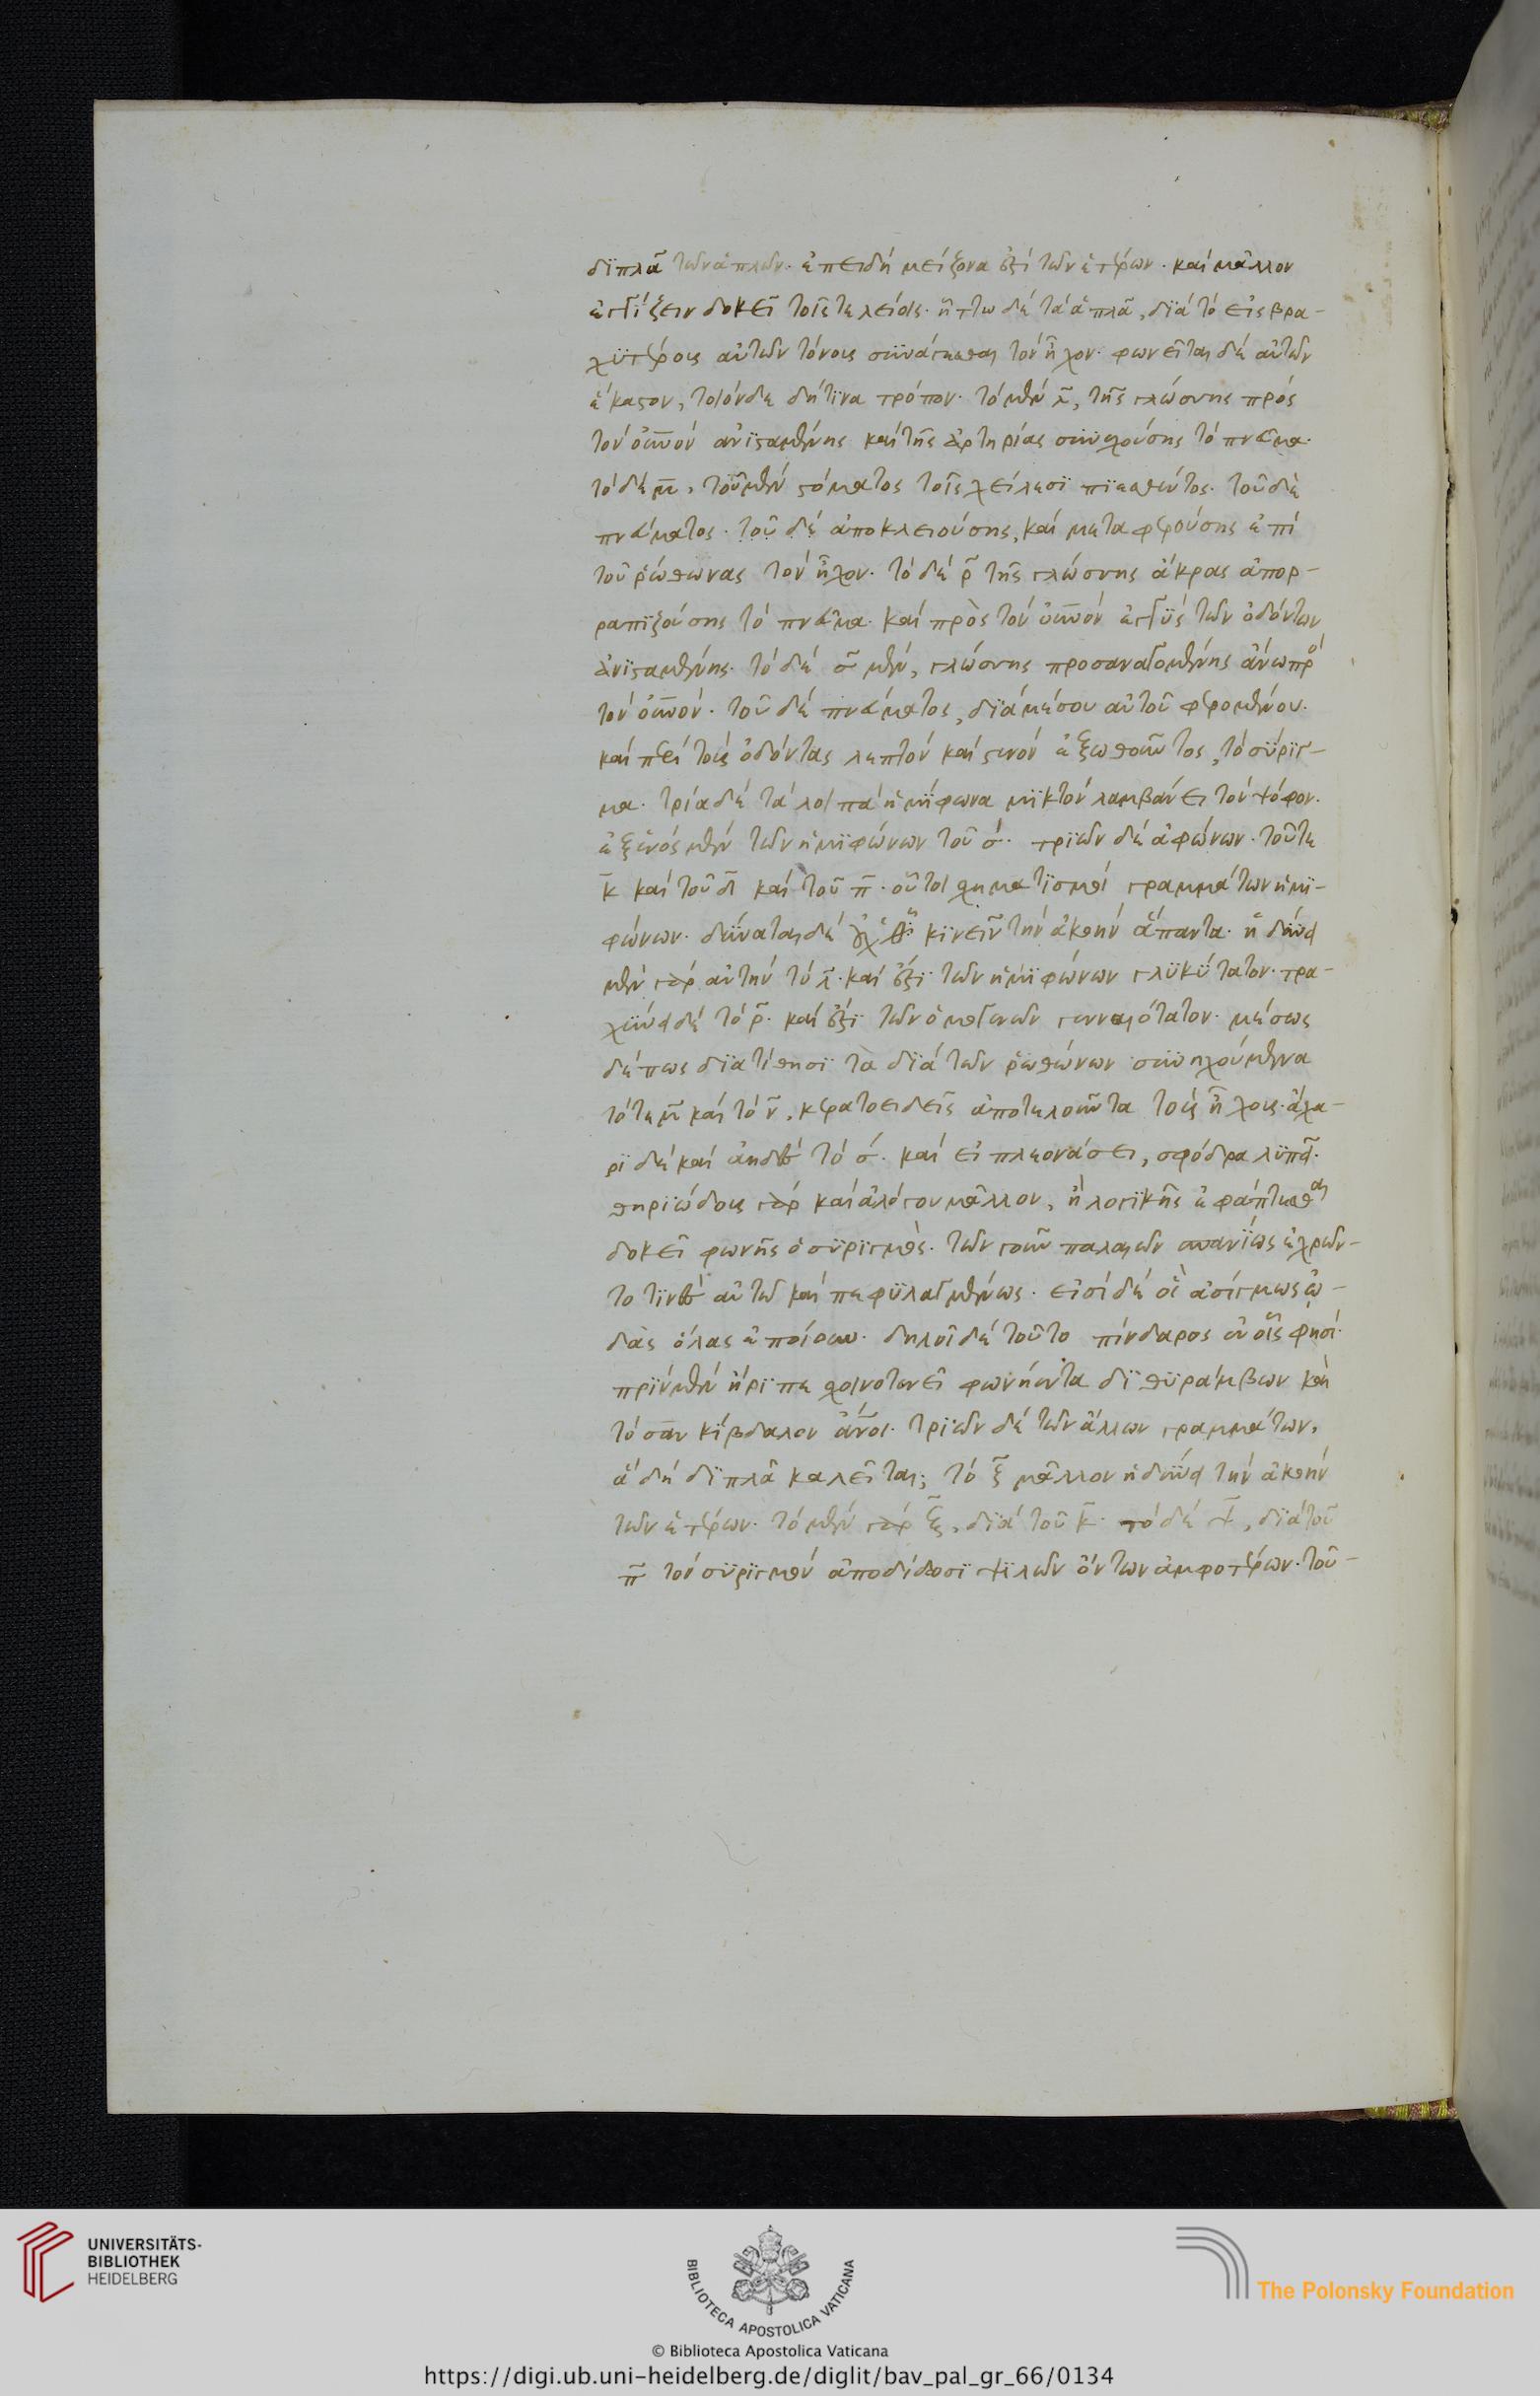 διπλᾶ τῶν ἁπλῶν. ἐπειδὴ μείζονα ἐστὶ τῶν ἑτέρων. καὶ μᾶλλον
ἐγγίζειν δοκεῖ τοῖς τελείοις. ἥττω δὲ τὰ ἁπλᾶ, διὰ τὸ εἰς βρα-
χυτέρους αὐτῶν τόνους συνάγεσθαι τὸν ἦχον. φωνεῖται δὲ αὐτῶν
ἕκαστον, τοιόνδε δή τινα τρόπον. τὸ μὲν λ̄, τῆς γλώσσης πρὸς
τὸν οὐρανὸν ἀνισταμένης καὶ τῆς ἀρτηρίας συνηχούσης τὸ πνεῦμα.
τὸ δὲ μ̄, τοῦ μὲν στόματος τοῖς χείλεσι πιεσθέντος. τοῦ δὲ
πνεύματος. τοῦ δὲ ἀποκλειούσης, καὶ μεταφερούσης ἐπὶ
τοῦ ῥώθωνας τὸν ἦχον. τὸ δὲ ρ̄ τῆς γλώσσης ἄκρας ἀπορ-
ραπιζούσης τὸ πνεῦμα. καὶ πρὸς τὸν οὐρανὸν ἐγγὺς τῶν ὀδόντων
ἀνισταμένης. τὸ δὲ σ̄ μὲν, γλώσσης προσαναγομένης ἄνω πρὸς
τὸν οὐρανόν. τοῦ δὲ πνεύματος, διὰ μέσου αὐτοῦ φερομένου.
καὶ περὶ τοὺς ὀδόντας λεπτὸν καὶ στενὸν ἐξωθοῦντος, τὸ σύριγ-
μα. τρία δὲ τὰ λοιπὰ ἡμίφωνα μικτὸν λαμβάνει τὸν ψόφον.
ἐξ ἑνὸς μὲν τῶν ἡμιφώνων τοῦ σ. τριῶν δὲ ἀφώνων. τοῦ τε
κ̄ καὶ τοῦ δ̄ καὶ τοῦ π̄. οὗτοι σχηματισμοὶ γραμμάτων ἡμι-
φώνων. δύναται δὲ κινεῖν τὴν ἀκοὴν ἅπαντα. ἡδύνει
μὲν γὰρ αὐτὴν τὸ λ̄. καὶ ἔστι τῶν ἡμιφώνων γλυκύτατον. τρα-
χύνει δὲ τὸ ρ̄. καὶ ἔστι τῶν ὁμογενῶν γενναιότατον. μέσως
δέ πως διατίθησι τὰ διὰ τῶν ῥωθώνων συνηχούμενα
τό τε μ̄ καὶ τὸ ν̄, κερατοειδεῖς ἀποτελοῦντα τοὺς ἤχους. ἄχα-
ρι δὲ καὶ ἀηδὲς τὸ σ. καὶ εἰ πλεονάσει, σφόδρα λυπεῖ.
θηριώδους γὰρ καὶ ἀλόγου μᾶλλον, ἢ λογικῆς ἐφάπτεσθαι
δοκεῖ φωνῆς ὁ συριγμός. τῶν γοῦν παλαιῶν σπανίως ἐχρῶν-
το τινὲς αὐτῷ καὶ πεφυλαγμένως. εἰσὶ δὲ οἳ ἀσίγμους ὠ-
δὰς ὅλας ἐποίουν. δηλοῖ δὲ τοῦτο πίνδαρος ἐν οἷς φησί.
πρὶν μὲν ἤριπε σχοινοτενεῖ φωνήεντα διθυράμβων καὶ
τὸ σὰν κίβδαλον ἄνοι. τριῶν δὲ τῶν ἄλλων γραμμάτων,
ἃ δὴ διπλᾶ καλεῖται; τὸ ξ̄ μᾶλλον ἡδύνει τὴν ἀκοὴν
τῶν ἑτέρων. τὸ μὲν γὰρ ξ̄, διὰ τοῦ κ̄. τὸ δὲ ψ̄, διὰ τοῦ
π̄ τὸν συριγμὸν ἀποδίδωσι ψιλῶν ὄντων ἀμφοτέρων. τοῦ-
UNIVERSITÄTS-
BIBLIOTHEK
HEIDELBERG
BIBLIOTECA APOSTOLICA VATICANA
The Polonsky Foundation
© Biblioteca Apostolica Vaticana
https://digi.ub.uni-heidelberg.de/diglit/bav_pal_gr_66/0134